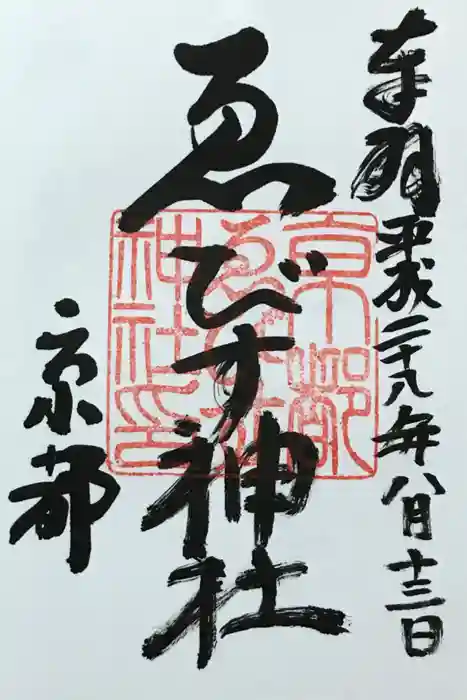 奉拝 平成二十八年八月十三日
ゑびす神社
京都
京都
ゑびす
神社印